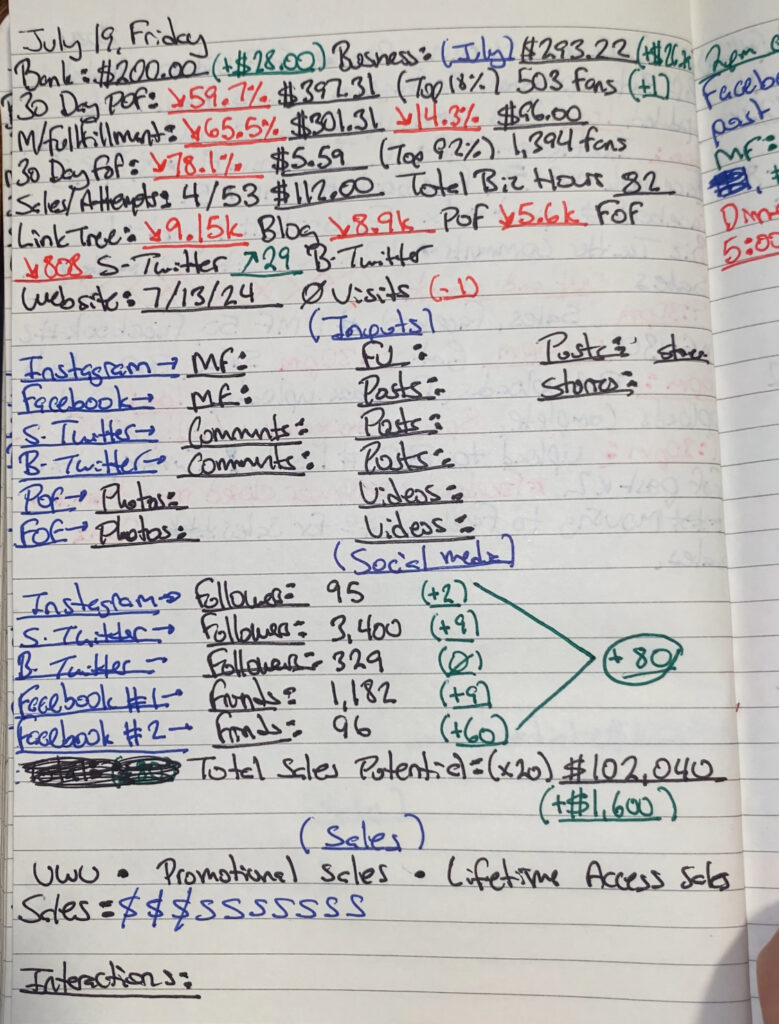 July 19, Friday
Bank: $200.00 (+$28.00) Busness: (July) $293.22
30 Day POF: ↘59.7% $392.31 (Top 18%) 503 fans (+1)
M/fullfillment: ↘65.5% $301.31 ↘14.3% $96.00
30 Day FOF: ↘78.1% $5.59 (Top 92%) 1,394 fans
Sales/Attempts: 4/53 $112.00 Total Biz Hours 82
LinkTree: ↘9.15k Blog ↘8.9k POF ↘5.6k FOF
↘808 S-Twitter ↗29 B-Twitter
Website: 7/13/24 Ø Visits (-1)
(Inputs)
Instagram→ MF: FU: Posts: stories
Facebook→ MF: Posts: Stories:
S. Twitter→ Comments: Posts:
B. Twitter→ Comments: Posts:
POF→ Photos: Videos:
FOF→ Photos: Videos:
(Social media)
Instagram→ Followers= 95 (+2)
S. Twitter→ Followers= 3,400 (+9)
B Twitter— Followers= 329 (Ø)
Facebook #1→ Friends= 1,182 (+9)
Facebook #2→ Friends= 96 (+60)
+80
Total Sales Potential=(x20) $102,040
(+$1,600)
(Sales)
UWU • Promotional Sales • Lifetime Access Sales
Sales=$$$SSSSSSSS
Interactions:
2pm
Facebo
past
MF:
5:00